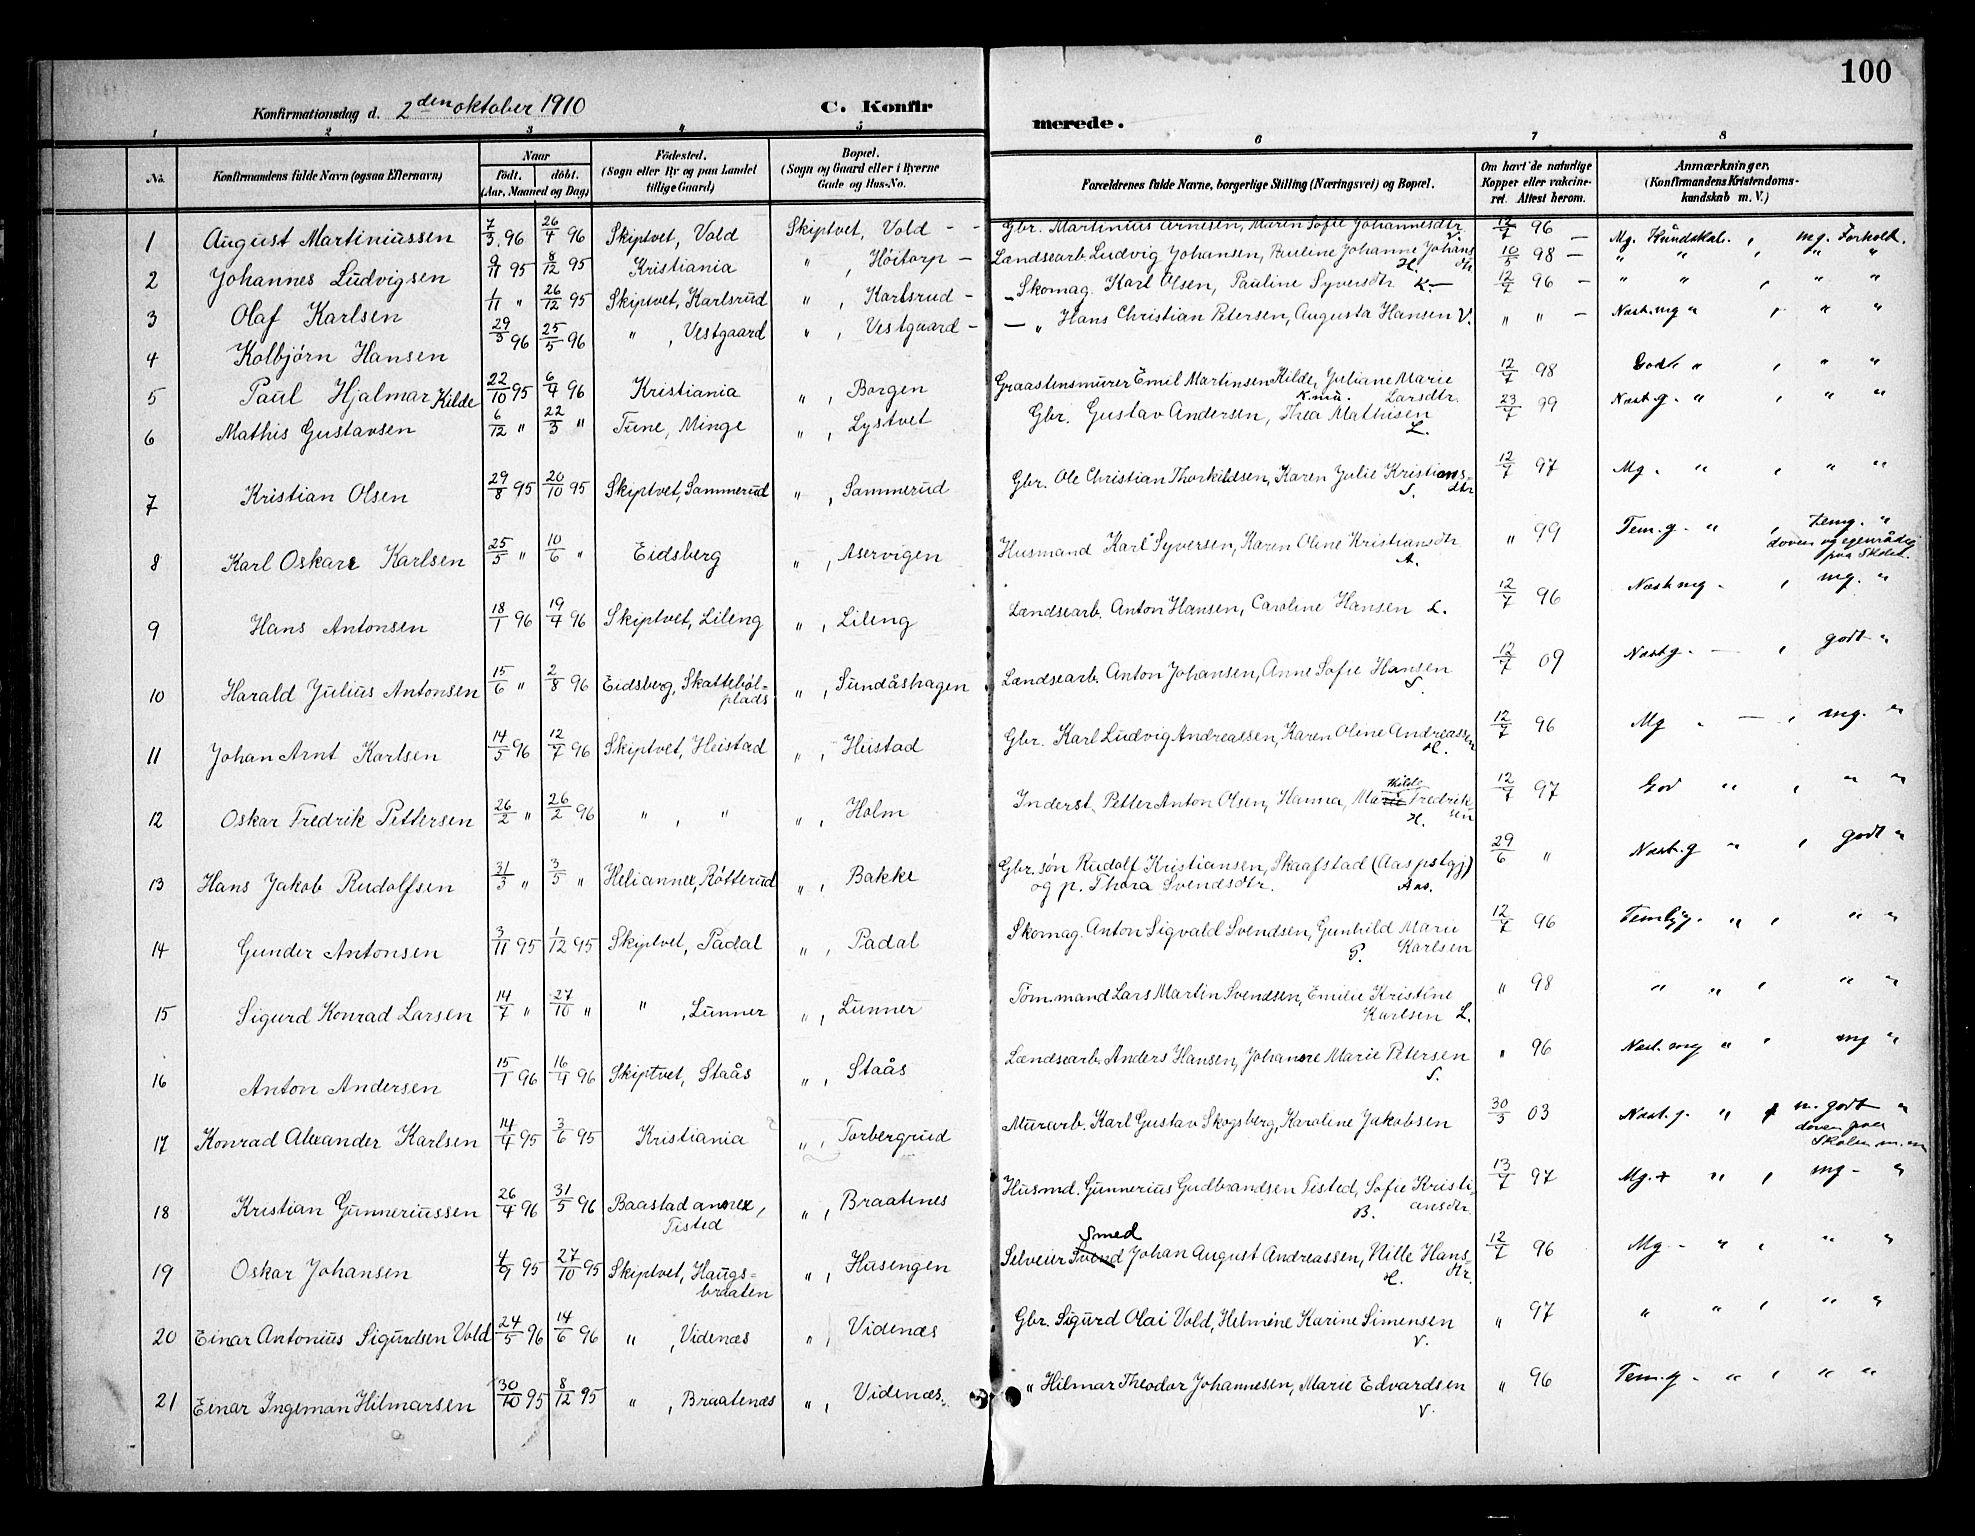 100
Konfirmationsdag d. 2den oktober 1910 C. Konfirmerede.
1 2 3 4 5 6 7 8
No. Konfirmandens fulde Navn (ogsaa Efternavn) Naar født. døbt. (Aar, Maaned og Dag) Fødested. (Sogn eller By og paa Landet tillige Gaard) Bopæl. (Sogn og Gaard eller i Byerne Gade og Hus-No. Forældrenes fulde Navne, borgerlige Stilling (Næringsvei) og Bopæl. Om havt de naturlige Kopper eller vakcineret. Attest herom. Anmærkninger. (Konfirmandens Kristendomskundskab m. V.)
1 August Martiniussen 7/3 96 26/4 96 Skiptvet, Vold Skiptvet, Vold - - Gbr. Martinius Arnesen, Maren Sofie Johannesdtr. V. 12/7 96 — Mg. Kundskab. , mg. Forhold.
2 Johannes Ludvigsen 9/11 95 8/12 95 Kristiania " , Høitorp - Landsearb. Ludvig Johansen, Pauline Johanne Johansdtr H. 10/5 98 — " " , " "
3 Olaf Karlsen 1/11 " 26/12 95 Skiptvet, Karlsrud " , Karlsrud - - Skomag. Karl Olsen, Pauline Syversdtr K. — 12/7 96 — " " , " "
4 Kolbjørn Hansen 29/3 96 25/5 96 " , Vestgaard " , Vestgaard - — " Hans Christian Petersen, Augusta Hansen V. " " — Næst. mg " , " "
5 Paul Hjalmar Kilde 22/10 95 6/4 96 Kristiania " , Borgen Graastensmurer Emil Martinsen Kilde, Juliane Marie Larsdtr. 12/7 98 Godt. " , " "
6 Mathis Gustavsen 6/12 " 22/3 " Tune, Minge " , Lystvet Gbr. Gustav Andersen, Thea Mathisen L. 23/7 99 Næst. g. " , " "
7 Kristian Olsen 29/8 95 20/10 95 Skiptvet, Sammerud " , Sammerud Gbr. Ole Christian Thorkildsen, Karen Julie Kristiansdtr S. 12/7 97 Mg. " , " "
8 Karl Oskar Karlsen 25/5 " 10/6 " Eidsberg " , Aservigen Husmand Karl Syversen, Karen Oline Kristiansdtr A. " 99 Tem. g. " , temg. "
doven og egenraadig paa Skolen.
9 Hans Antonsen 18/1 96 19/4 96 Skiptvet, Lileng " , Lileng Landsearb. Anton Hansen, Caroline Hansen L. 12/7 96 Næst mg - , mg. "
10 Harald Julius Antonsen 15/6 " 2/8 96 Eidsberg, Skattebøl-plads " , Sundåshagen Landsearb. Anton Johansen, Anne Sofie Hansen S. 12/7 09 Næst g. — , godt "
11 Johan Arnt Karlsen 14/5 96 12/7 96 Skiptvet, Heistad " , Heistad Gbr. Karl Ludvig Andreassen, Karen Oline Andreassen H. 12/7 96 Mg " — , mg. "
12 Oskar Fredrik Pettersen 26/2 " 26/2 96 " , " " , Holm Inderst. Petter Anton Olsen, Hanna Mathilde Fredriksen H. 12/7 97 God " , " "
13 Hans Jakob Rudolfsen 31/3 " 3/5 " Heliannex, Røtterud " , Bakke Gbr. søn Rudolf Kristiansen, Skaafstad (Aas pstgj)
og p. Thora Svendsdtr. Aas. 29/6 " Næst. g " , godt "
14 Gunder Antonsen 3/11 95 1/12 95 Skiptvet, Padal " , Padal Skomag. Anton Sigvald Svendsen, Gunhild Marie Karlsen P. 12/7 96 " , " "
15 Sigurd Konrad Larsen 14/7 " 27/10 " " , Lunner " , Lunner Tom.mand Lars Martin Svendsen, Emilie Kristine Karlsen L. " 98 " " , " "
16 Anton Andersen 15/1 96 16/4 96 Skiptvet, Staås " , Staås Landsearb. Anders Hansen, Johanne Marie Petersen S. " 96 Næst. mg " , mg "
17 Konrad Alexander Karlsen 14/4 95 3/6 95 Kristiania " , Torbergrud Murarb. Karl Gustav Skogsberg, Karoline Jakobsen 30/3 03 Næst. g. " n. godt "
doven paa Skolen m. m
18 Kristian Gunneriussen 26/4 96 31/5 96 Baastad annex, Tisted " , Braatenes Husmd. Gunnerius Gudbrandsen Tisted, Sofie Kristiansdtr. B. 13/7 97 Mg. " , mg - "
19 Oskar Johansen 4/9 95 27/10 95 Skiptvet, Haugs-braaten " , Husengen Selveier Smed Johan August Andreassen, Nille Hansdtr. H. 12/7 96 Mg - " , " "
20 Einar Antonius Sigurdsen Vold 24/5 96 14/6 96 " , Videnæs " , Videnæs Gbr. Sigurd Olai Vold, Helmine Karine Simensen V. " 97 " " , " "
21 Einar Ingeman Hilmarsen 30/10 95 8/12 95 " , Braatenæs " , Videnæs. " Hilmar Theodor Johannesen, Marie Edvardsen V. " 96 Tem. g - " , " "